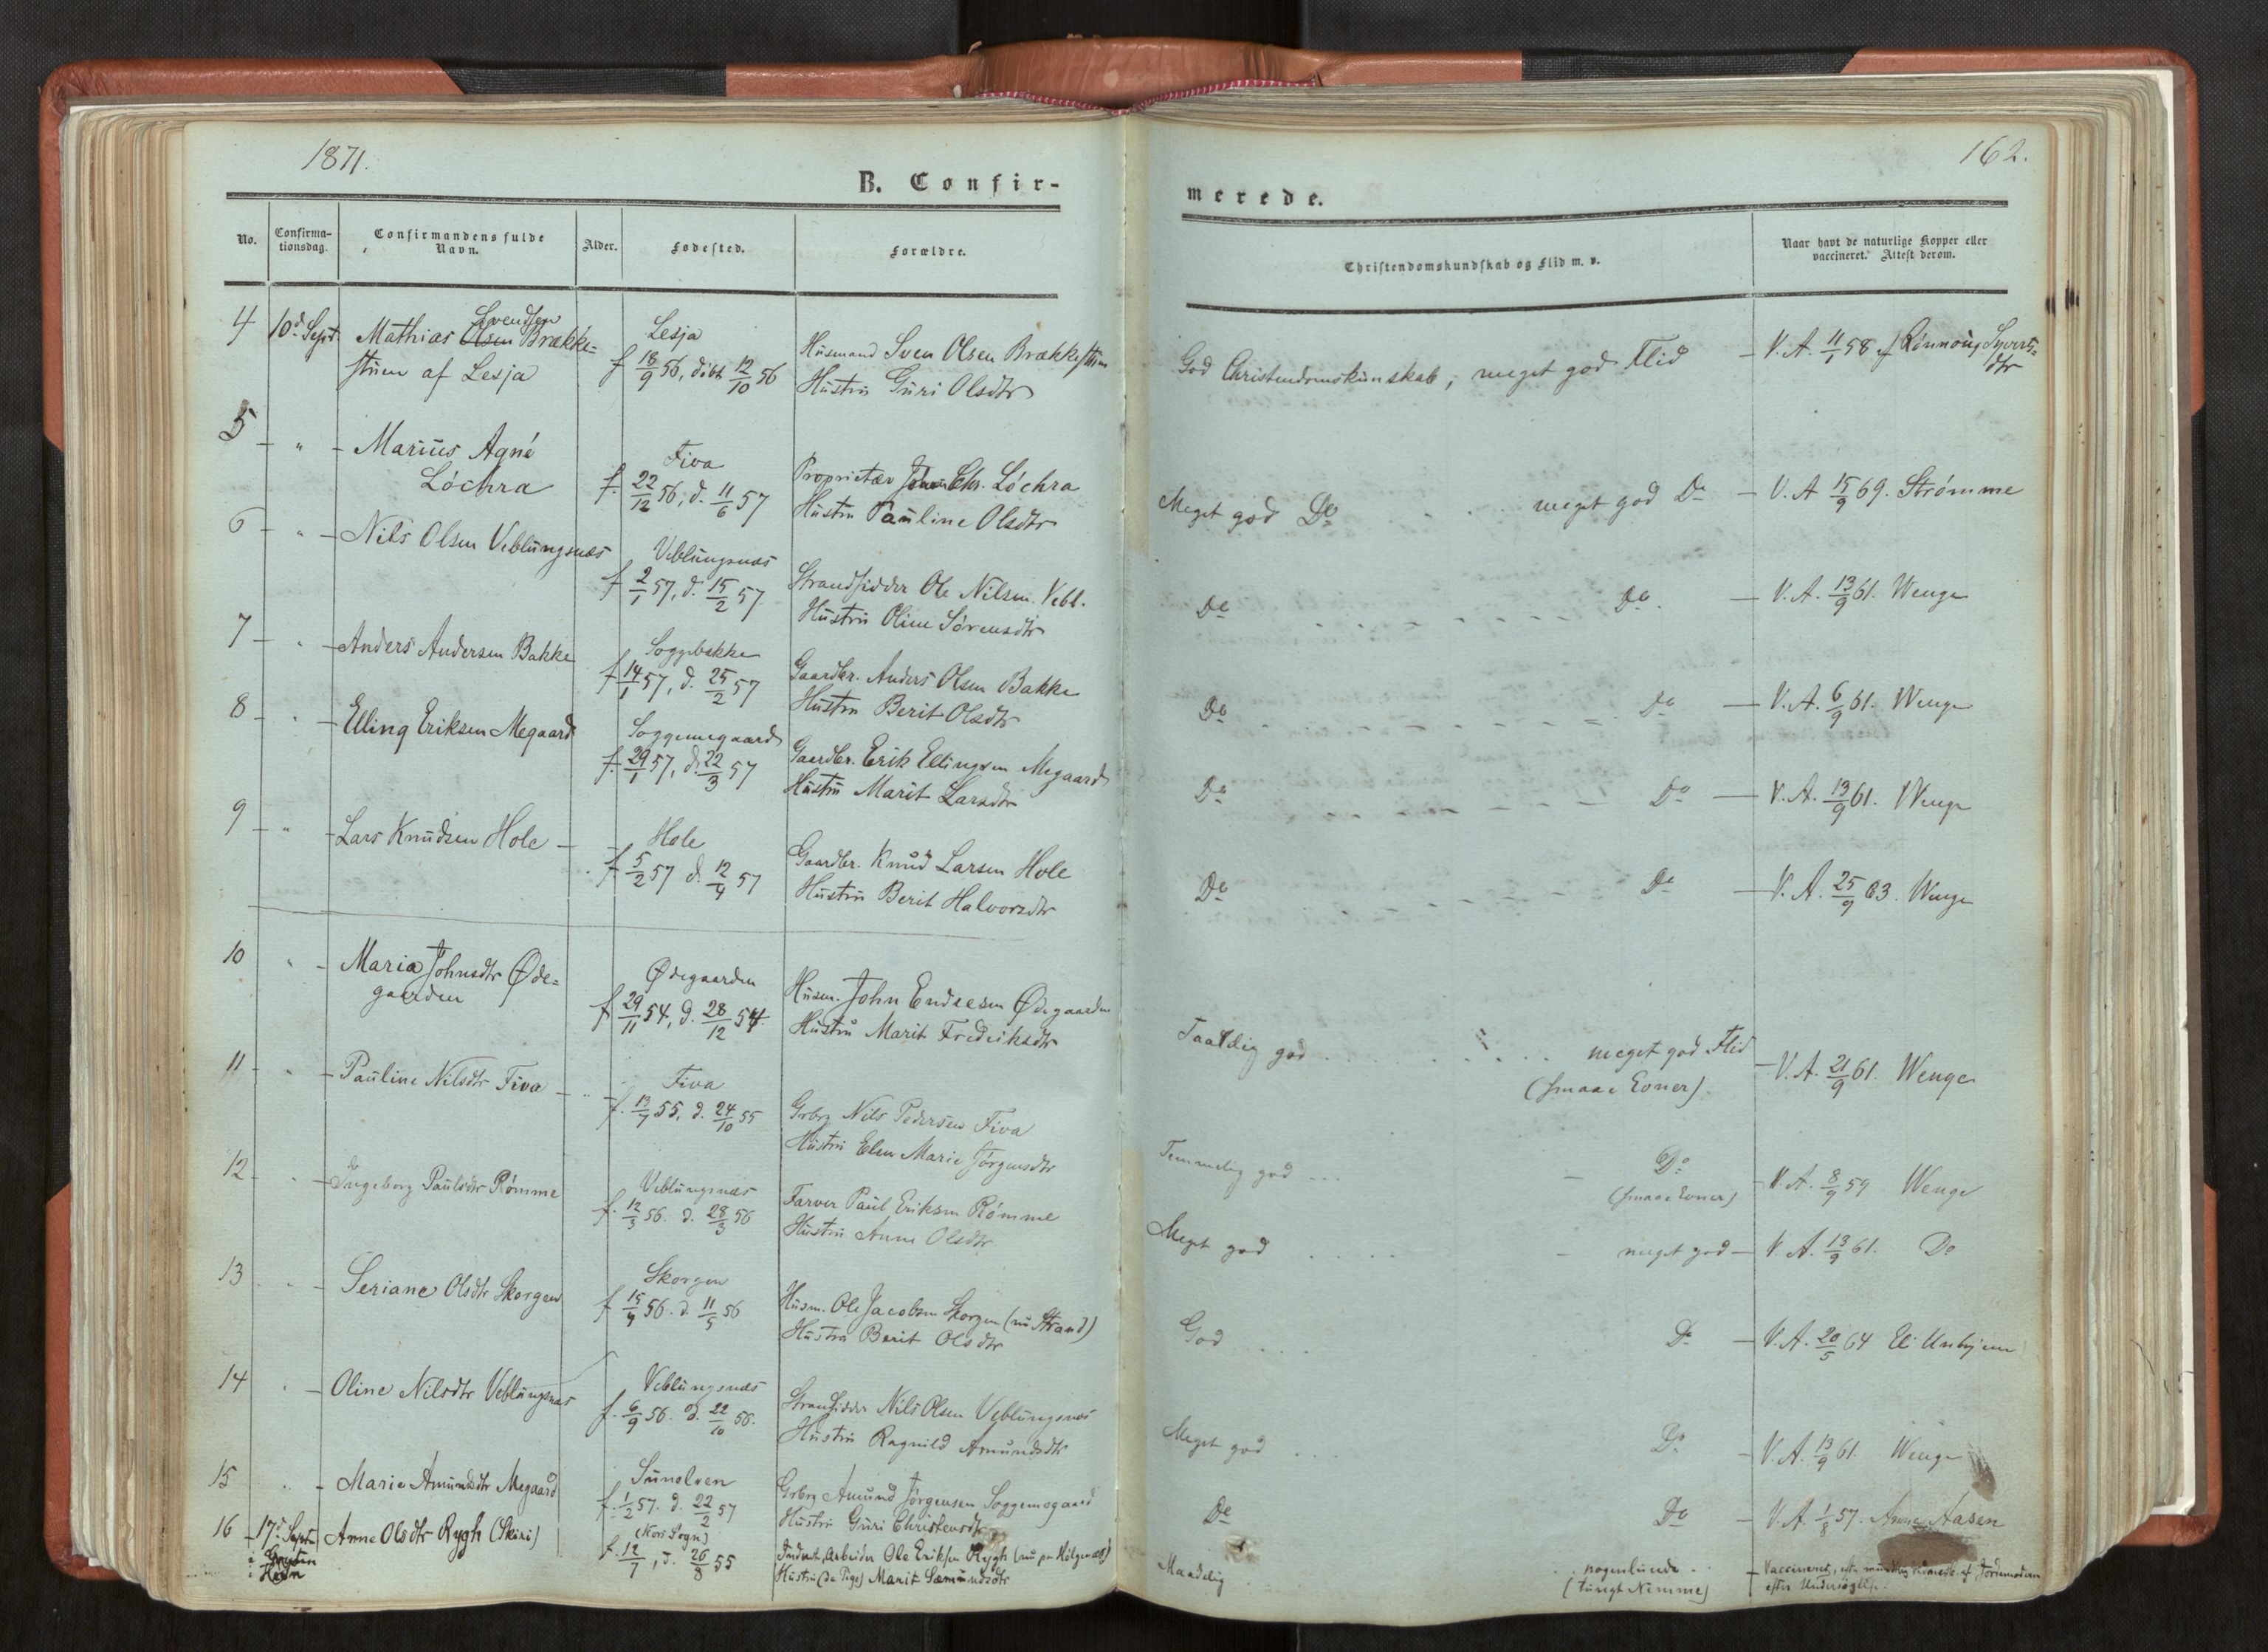 1871.
162.
B. Confir-
merede.
No.
Confirma-
tionsdag.
Confirmandens fulde
Navn.
Alder.
Fødested.
Forældre.
Christendomskundskab og Flid m. v.
Naar havt de naturlige Kopper eller
vaccineret. Attest derom.
4 10d Sept. Mathias Olsen Svendsen Brække-
stuen af Lesja
Lesja
f 18/9 56, døbt 12/10 56
Husmand Sven Olsen Brækkestuen
Hustru Guri Olsdtr
God Christendomskunskab, meget god Flid
V. A. 11/1 58 af Rønnoug Syverts-
dtr
5 " Marius Agné
Lóchra
Fiva
f. 22/12 56, d. 11/6 57
Proprietær Johan Chr. Lóchra
Hustru Pauline Olsdtr
Meget god Do meget god Do
V. A 15/9 69. Strømme
6 " Nils Olsen Veblungsnæs
Veblungsnæs
f 2/1 57, d. 15/2 57
Strandsidder Ole Nilsen Vebl.
Hustru Oline Sørensdtr
Do Do
V. A. 13/9 61. Wenge
7 " Anders Andersen Bakke
Soggebakke
f 14/1 57, d. 25/2 57
Gaardbr. Anders Olsen Bakke
Hustru Berit Olsdtr
Do Do
V. A. 6/9 61. Wenge
8 " Elling Eriksen Megaard
Soggemegaard
f. 29/1 57, d. 22/3 57
Gaardbr. Erik Ellingsen Megaard
Hustru Marit Larsdtr
Do Do
V. A. 13/9 61. Wenge
9 " Lars Knudsen Hole
Hole
f 5/2 57 d. 12/4 57
Gaardbr. Knud Larsen Hole
Hustru Berit Halvorsdtr
Do Do
V. A. 25/9 63. Wenge
10 " Maria Johnsdtr Øde-
gaarden
Ødegaarden
f 29/11 54, d. 28/12 54.
Husm. John Endresen Ødegaarden
Hustru Marit Frederiksdtr
Taalelig god meget god Flid
(smaae Evner).
V. A. 21/9 61. Wenge
11 " Pauline Nilsdtr Fiva
Fiva
f. 13/7 55, d. 24/10 55
Grbrg Nils Pedersen Fiva
Hustru Elen Marie Jørgensdtr
Temmelig god Do
(smaae Evner)
V. A. 8/9 59 Wenge
12 " Ingeborg Paulsdtr Rømme
Veblungsnæs
f. 12/3 56. d. 28/3 56
Farver Paul Eriksen Rømme
Hustru Anne Olsdtr
Meget god meget god
V. A. 13/9 61. Do
13 " Seriane Olsdtr Skorgen
Skorgen
f 15/4 56. d. 11/5 56
Husm. Ole Jacobsen Skorgen (nu Strand)
Hustru Berit Olsdtr
God Do
V. A. 20/5 64 Eli Unhjem
14 " Oline Nilsdtr Veblungsnæs
Veblungsnæs
f. 6/9 56. d. 22/10 56.
Strandsidder Nils Olsen Veblungsnæs
Hustru Ragnild Amundsdtr
Meget god Do
V. A. 13/9 61. Wenge
15 " Marie Amundsdtr Megaard
f. 1/2 57. d. 22/2 57
Grbrg Amund Jørgensen Soggemegaard
Hustru Guri Christensdtr
Do Do
V. A. 1/8 57. Anne Aasen
16 17d Septr Anne Olsdtr Rygh (Skiri)
i Grytten
(Kors Sogn)
f. 12/7, d. 26/8 55
Arbeider Ole Eriksen Rygh
Hustru (da Pige) Marit Sæmundsdtr
Maadelig nogenlunde
(tungt Nemme)
Vaccineret, efter af Jordemoderen
efter Undersøgelse.